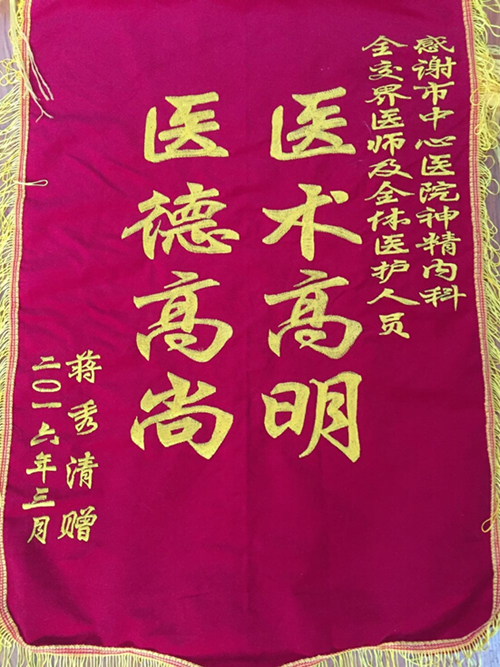 感谢市中心医院神精内科
全交界医师及全体医护人员
医术高明
医德高尚
蒋秀清赠
二〇一六年三月